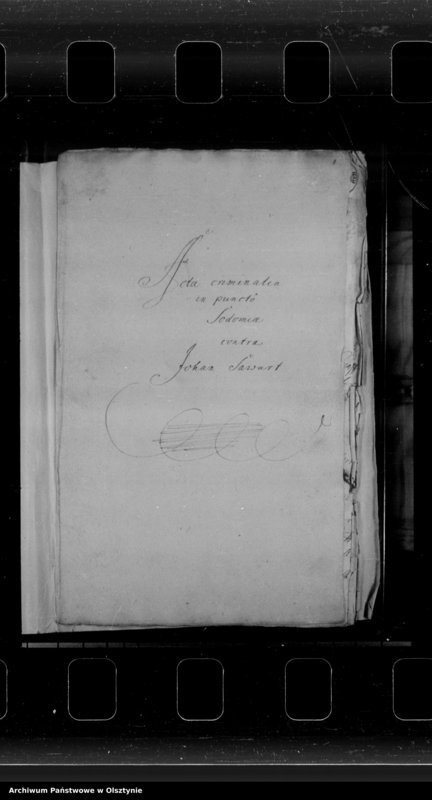 Acta criminalia
in puncto
Sodomiæ
contra
Johan
Archiwum Państwowe w Olsztynie